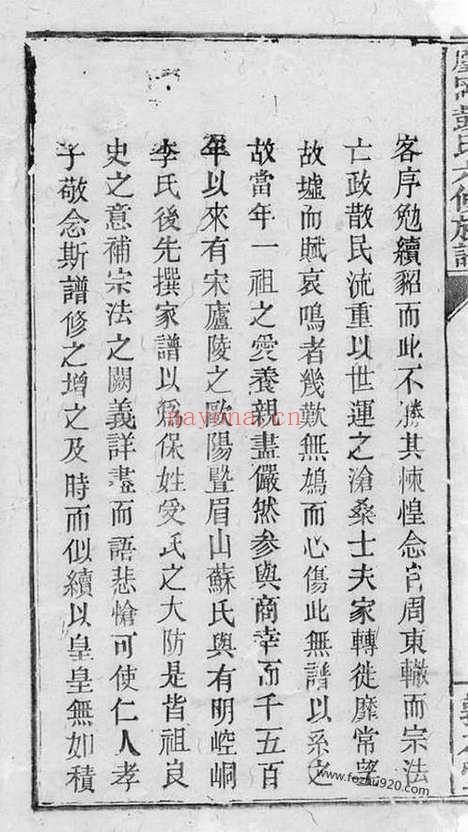 客序勉續貂而此不勝其悚惶念自周東轍而宗法
亡政散民流重以世運之滄桑士夫家轉徙靡常望
故墟而賦哀鳴者幾歎無鳩而心傷此無譜以系之
故當年一祖之愛養親盡儼然參與商幸而千五百
年以來有宋廬陵之歐陽暨眉山蘇氏與有明崆峒
李氏後先撰家譜以爲保姓受氏之大防是皆祖良
史之意補宗法之闕義詳盡而語悲愴可使仁人孝
子敬念斯譜修之增之及時而似續以皇皇無如積
nayona.cn
www.fozhu920.com